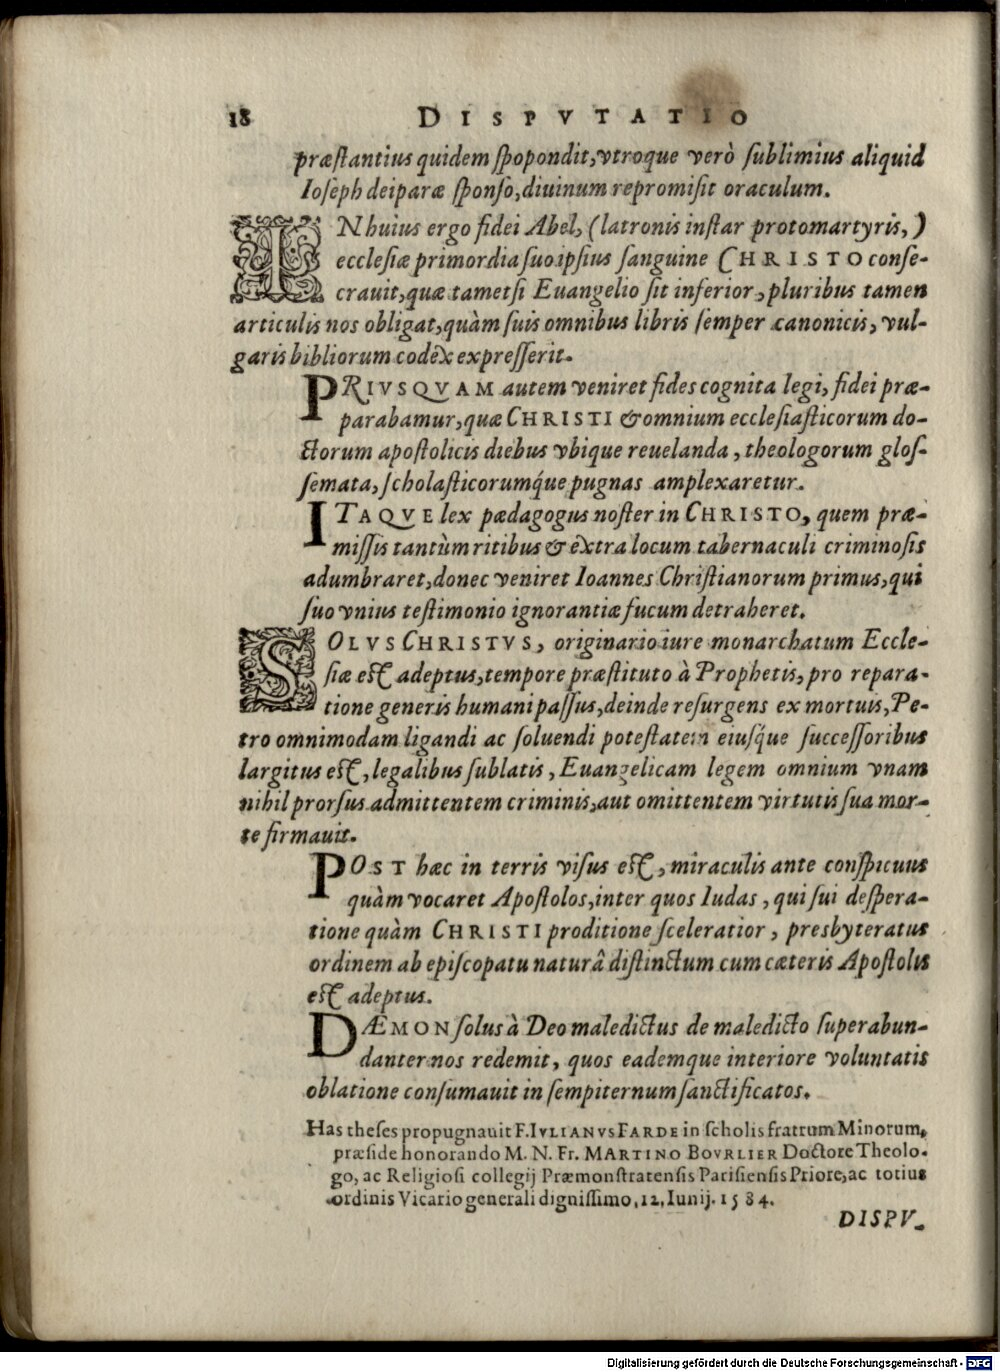 18 DISPVTATIO
præstantius quidem spopondit, vtroque verò sublimius aliquid
Ioseph deiparæ sponso, diuinum repromisit oraculum.
IN huius ergo fidei Abel, (latronis instar protomartyris,)
ecclesiæ primordia suo ipsius sanguine CHRISTO conse-
crauit, quæ tametsi Euangelio sit inferior, pluribus tamen
articulis nos obligat, quàm suis omnibus libris semper canonicis, vul-
garis bibliorum codex expresserit.
PRIVSQVAM autem veniret fides cognita legi, fidei præ-
parabamur, quæ CHRISTI & omnium ecclesiasticorum do-
ctorum apostolicis diebus vbique reuelanda, theologorum glos-
semata, scholasticorumq́ue pugnas amplexaretur.
ITAQVE lex pædagogus noster in CHRISTO, quem præ-
missis tantùm ritibus & extra locum tabernaculi criminosis
adumbraret, donec veniret Ioannes Christianorum primus, qui
suo vnius testimonio ignorantiæ fucum detraheret.
SOLVS CHRISTVS, originario iure monarchatum Eccle-
siæ est adeptus, tempore præstituto à Prophetis, pro repara-
tione generis humani passus, deinde resurgens ex mortuis, Pe-
tro omnimodam ligandi ac soluendi potestatem eiusq́ue successoribus
largitus est, legalibus sublatis, Euangelicam legem omnium vnam
nihil prorsus admittentem criminis, aut omittentem virtutis sua mor-
te firmauit.
POST hæc in terris visus est, miraculis ante conspicuus
quàm vocaret Apostolos, inter quos Iudas, qui sui despera-
tione quàm CHRISTI proditione sceleratior, presbyteratus
ordinem ab episcopatu naturâ distinctum cum cæteris Apostolis
est adeptus.
DÆMON solus à Deo maledictus de maledicto superabun-
danter nos redemit, quos eademque interiore voluntatis
oblatione consumauit in sempiternum sanctificatos.
Has theses propugnauit F. IVLIANVS FARDE in scholis fratrum Minorum,
præside honorando M. N. Fr. MARTINO BOVRLIER Doctore Theolo-
go, ac Religiosi collegij Præmonstratensis Parisiensis Priore, ac totius
ordinis Vicario generali dignissimo, 12, Iunij. 1584.
DISPV-
Digitalisierung gefördert durch die Deutsche Forschungsgemeinschaft - DFG